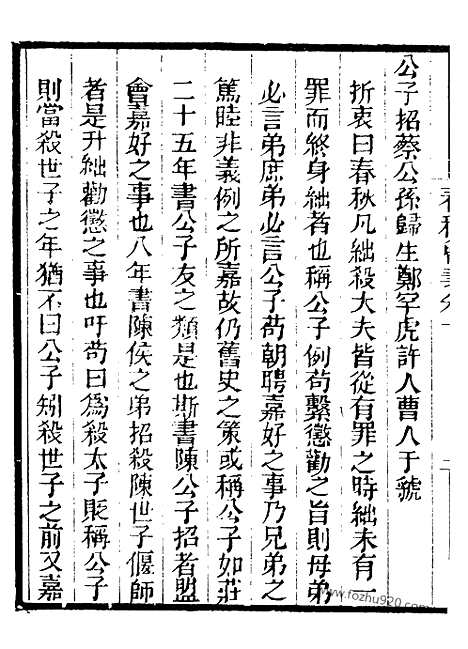 公子招蔡公孫歸生鄭罕虎許人曹人于虢
折衷曰春秋凡絀殺大夫皆從有罪之時絀未有一
罪而終身絀者也稱公子例苟繫懲勸之旨則母弟
必言弟庶弟必言公子苟朝聘嘉好之事乃兄弟之
篤睦非義例之所嘉故仍舊史之策或稱公子如莊
二十五年書公子友之類是也斯書陳公子招者盟
會嘉好之事也八年書陳侯之弟招殺陳世子偃師
者是升絀勸懲之事也吁苟曰為殺太子貶稱公子
則當殺世子之年猶不曰公子矧殺世子之前又嘉
www.fozhu920.com